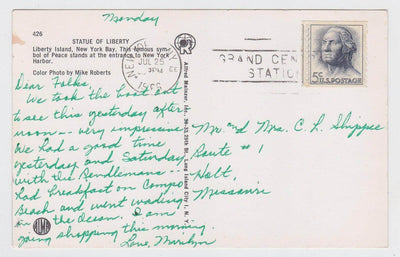 Monday
426
STATUE OF LIBERTY
Liberty Island, New York Bay. This famous sym-
bol of Peace stands at the entrance to New York
Harbor.
Color Photo by Mike Roberts
Dear Folks,
We took the boat out
to see this yesterday after
noon -- very impressive.
We had a good time
yesterday and Saturday
with the Pendlemans --
had breakfast on Compo
Beach and went wading
in the Ocean. I am
going shopping this morning.
Love, Marilyn
Alfred Mainzer, Inc. Long Island City 1, N.Y.
NEW YORK
JUL 25
PM
GRAND CEN
STATION
5¢ U.S. POSTAGE
Mr. and Mrs. C. L. Shippee
Route #1
Holt,
Missouri